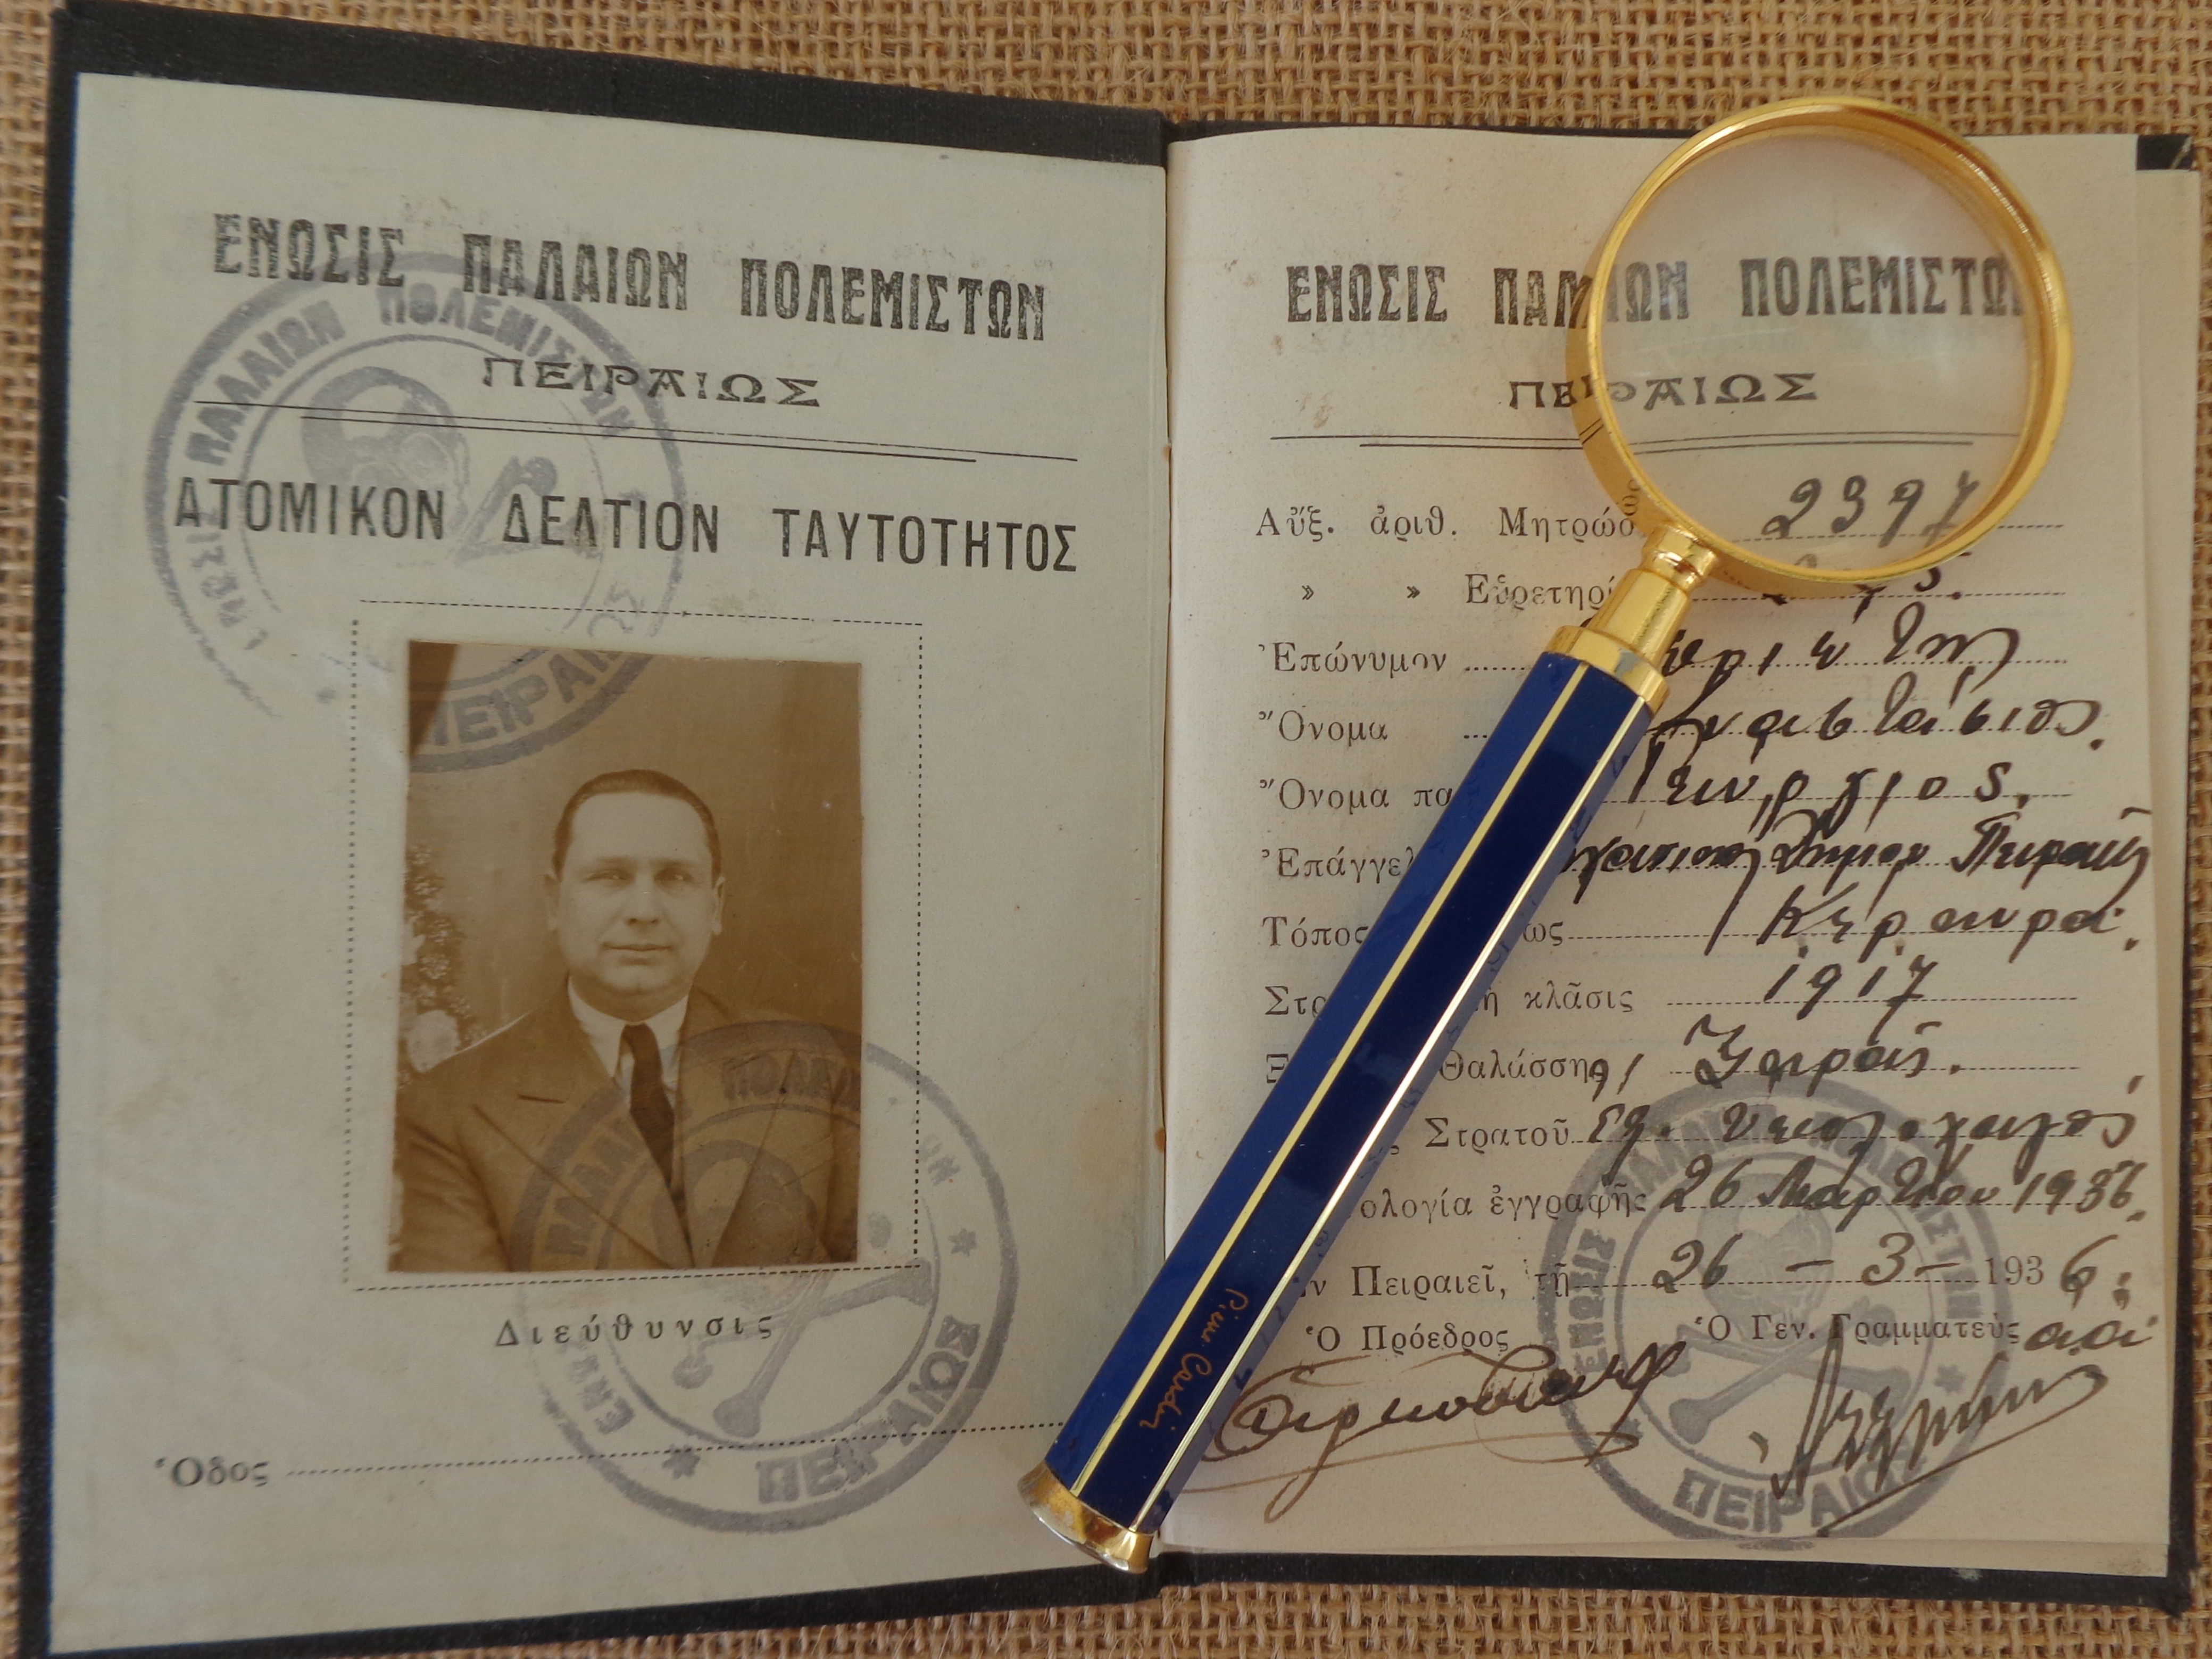 ΕΝΩΣΙΣ ΠΑΛΑΙΩΝ ΠΟΛΕΜΙΣΤΩΝ
ΠΕΙΡΑΙΩΣ
ΑΤΟΜΙΚΟΝ ΔΕΛΤΙΟΝ ΤΑΥΤΟΤΗΤΟΣ
ΠΑΛΑΙΩΝ ΠΟΛΕΜΙΣΤΩΝ
ΠΕΙΡΑΙΩΣ
Διεύθυνσις
Ὁδος
ΕΝΩΣΙΣ ΠΑΛΑΙΩΝ ΠΟΛΕΜΙΣΤΩΝ
ΠΕΙΡΑΙΩΣ
Αὔξ. ἀριθ. 2397
» »
Ἐπώνυμον
Ὄνομα Ἀναστάσιος.
Ὄνομα Γεώργιος.
Δήμου Πειραιῶς
Τόπος Κέρκυρα.
κλᾶσις 1917
Θαλάσσης Ξηρᾶς.
Στρατοῦ Ἐφ. Ὑπολοχαγὸς
ἐγγραφῆς 26 Μαρτίου 1936.
Πειραιεῖ, τῇ 26 - 3 - 1936.
Ὁ Πρόεδρος Ὁ Γεν. Γραμματεὺς α.α.
ΕΝΩΣΙΣ ΠΑΛΑΙΩΝ ΠΟΛΕΜΙΣΤΩΝ
ΠΕΙΡΑΙΩΣ
Pierre Cardin